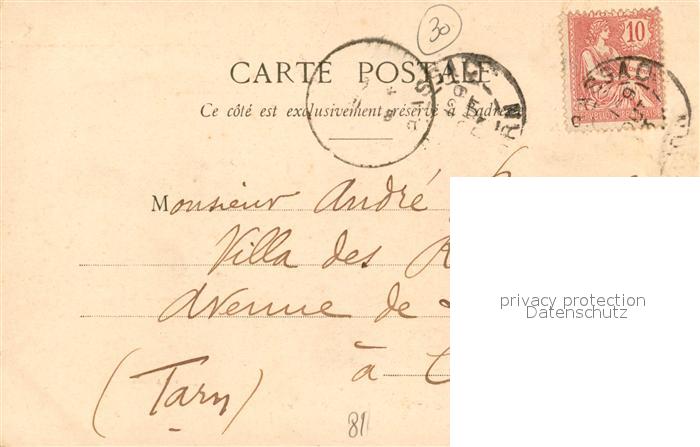 30
10
CARTE POSTALE
Ce côté est exclusivement réservé à l'adresse
RÉPUBLIQUE FRANÇAISE
Monsieur André
Villa des
Avenue de
à
(Tarn)
81
privacy protection
Datenschutz